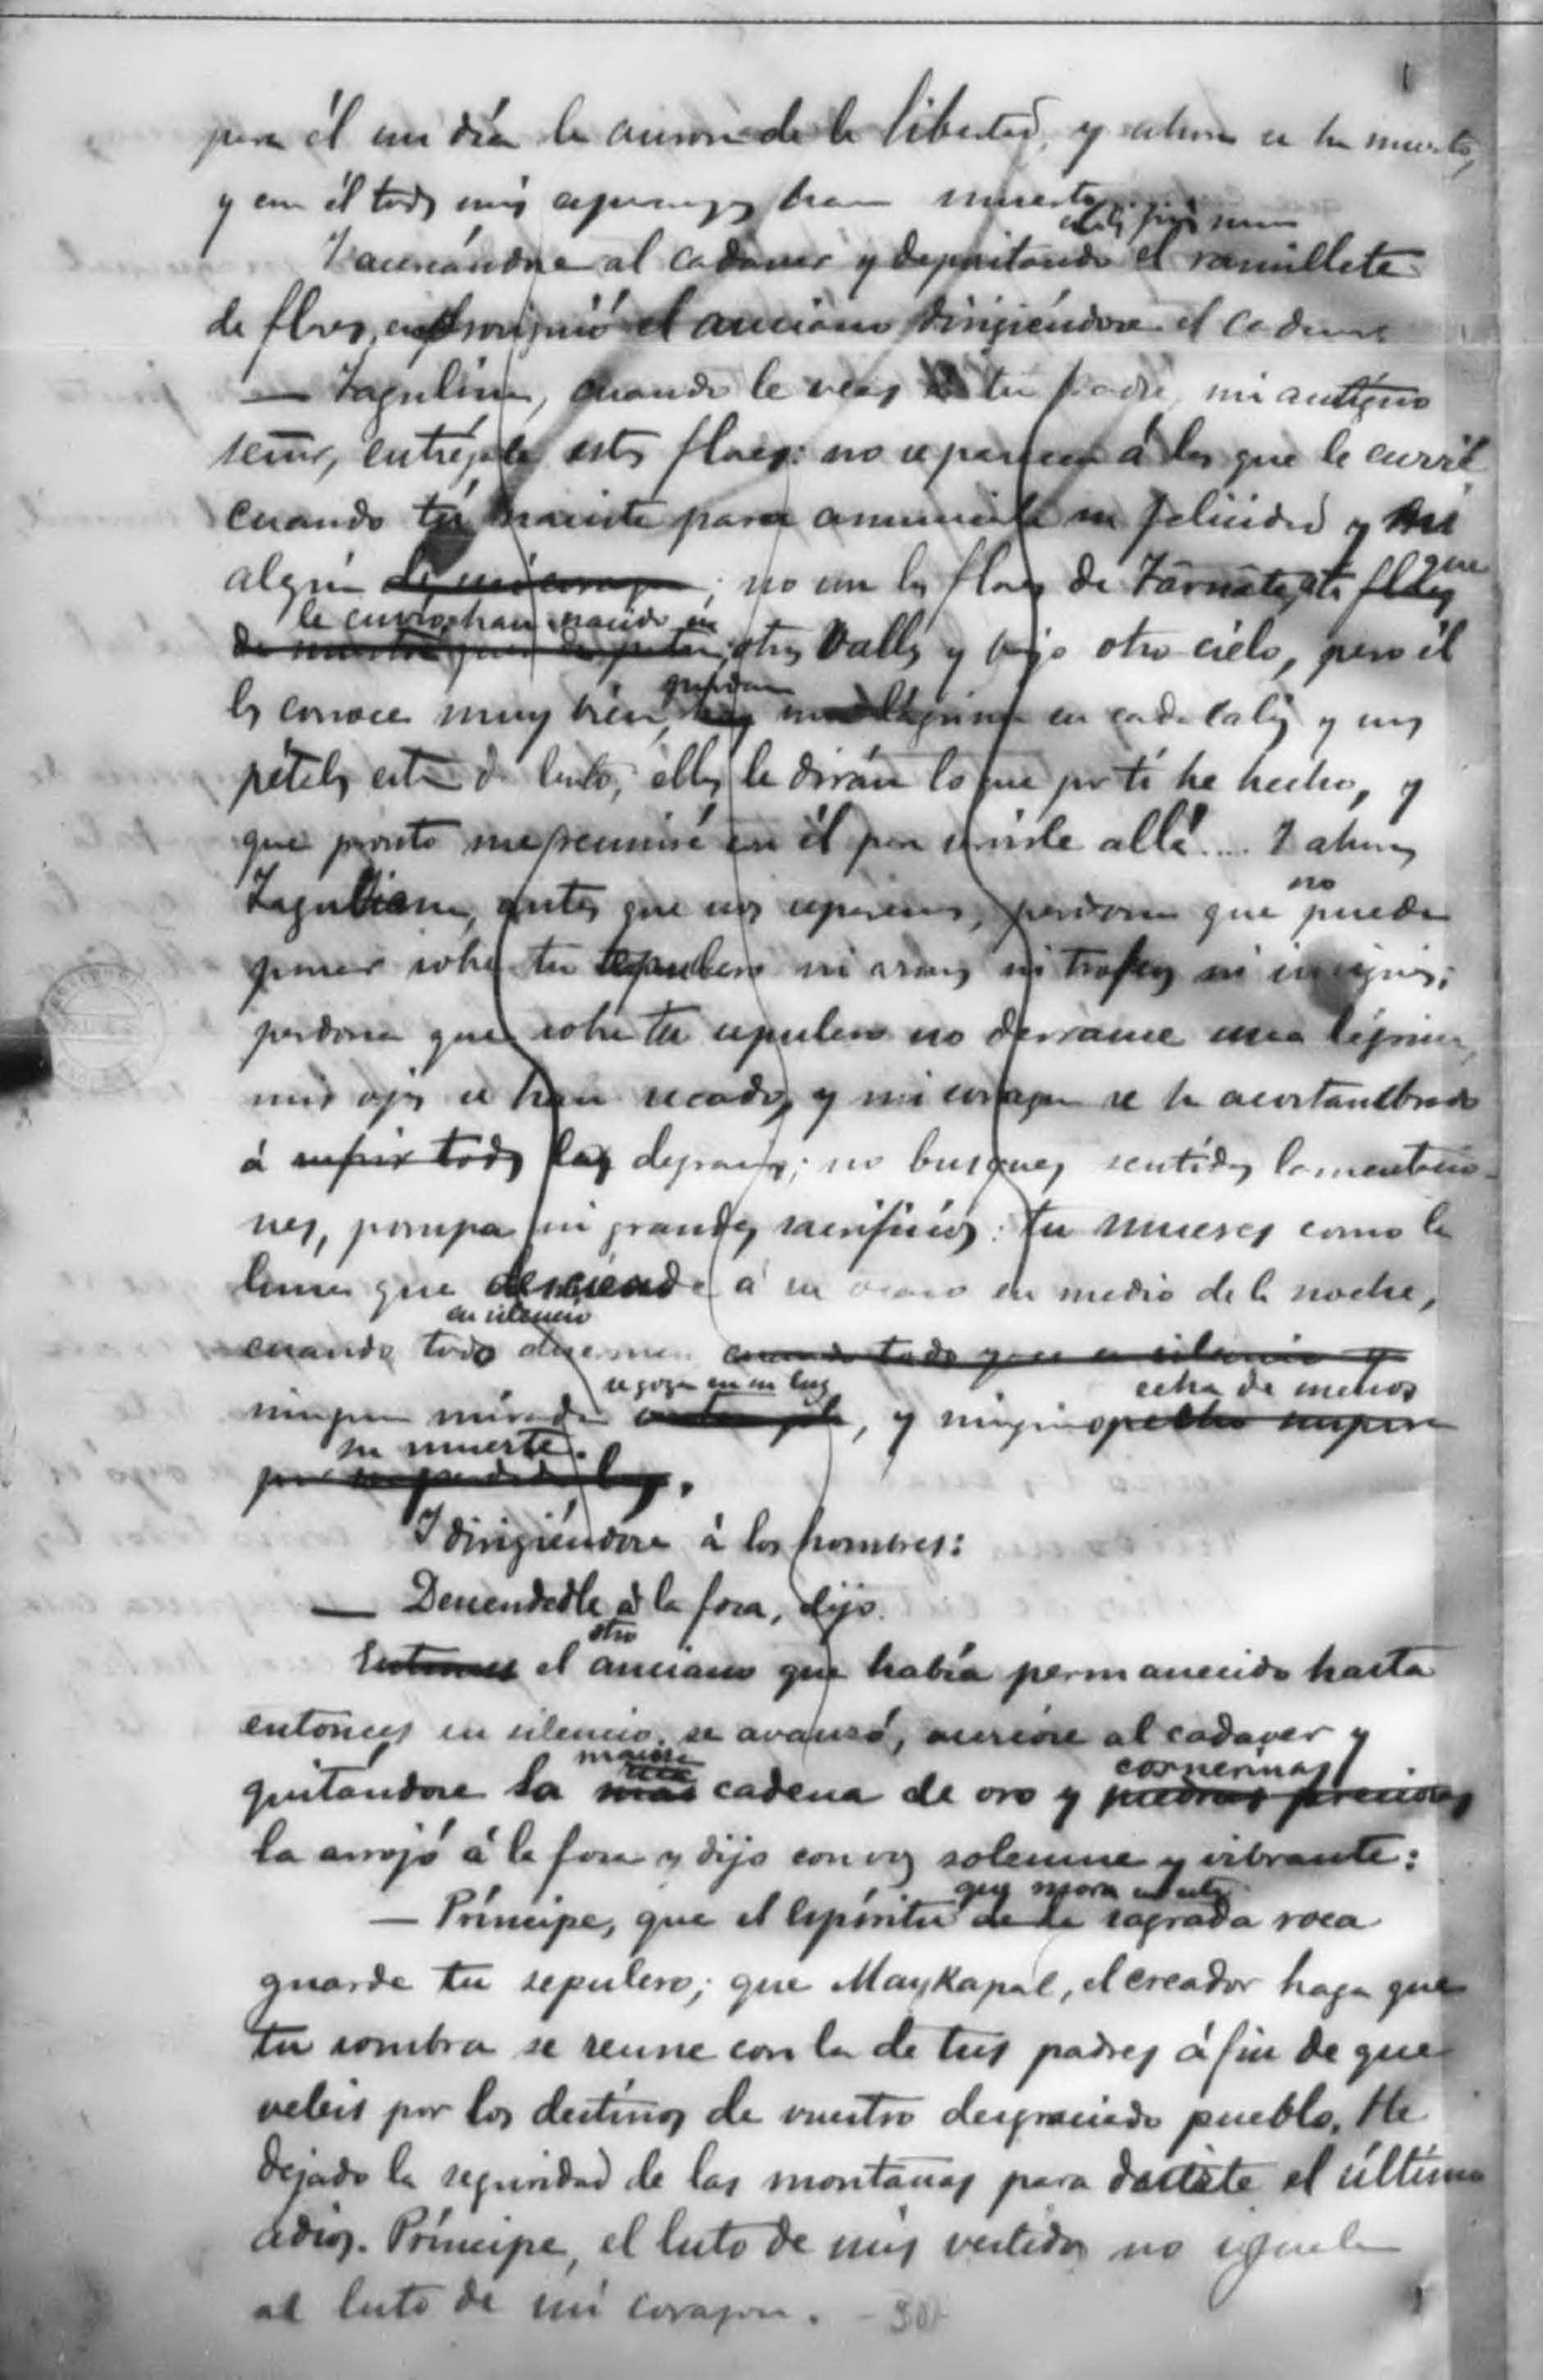 para él un día la aurora de la libertad, y ahora se ha muerto,
y con él todas mis esperanzas han muerto
Y acercándose al cadaver y depositando el ramillete
de flores, prosiguió el anciano dirigiéndose al cadaver
— Tagulima, cuando le veas á tu padre, mi antiguo
señor, entrégale estas flores: no se parecen á las que le envié
cuando tú naciste para anunciarle su felicidad y mi
alegría de mi corazon; no son las flores de Tarnate, estas flores que
le envío, han nacido en otros valles y bajo otro cielo, pero él
las conoce muy bien, guardan una lágrima en cada caliz y sus
pétalos están de luto; ellas le dirán lo que por tí he hecho, y
que pronto me reuniré con él para servirle allá.... Y ahora,
antes que nos separemos, perdona que no pueda
poner sobre tu sepulcro ni armas ni trofeos ni insignias;
perdona que sobre tu sepulcro no derrame una lágrima,
mis ojos se han secado, y mi corazon se ha acostumbrado
á sufrir todas las desgracias; no busques sentidas lamentacio-
nes, pompa ni grandes sacrificios: tu mueres como la
luna que desciende á su ocaso en medio de la noche,
en silencio
cuando todos duermen cuando todo yace en silencio y
se goza en su luz echa de menos
ninguna mirada contempla, y ningun pecho suspira
su muerte.
por su perdida luz.
Y dirigiéndose á los hombres:
— Descendedle á la fosa, dijo.
otro
Entonces el anciano que había permanecido hasta
entonces en silencio, se avanzó, acercóse al cadaver y
cornerinas
quitándose la cadena de oro y piedras preciosas
la arrojó á la fosa y dijo con voz solemne y vibrante:
que mora en esta
— Príncipe, que el Espíritu de la sagrada roca
guarde tu sepulcro; que Maykapal, el creador haga que
tu sombra se reune con la de tus padres á fin de que
veleis por los destinos de vuestro desgraciado pueblo. He
dejado la seguridad de las montañas para darte el último
adios. Príncipe, el luto de mis vestidos no iguala
al luto de mi corazon.